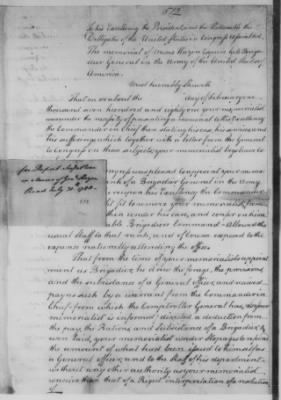 To his Excellency the President and the Honorable the
Delegates of the United States in Congress Assembled.
The memorial of Moses Hazen Esquire late Briga-
dier General in the Army of the United States of
America.
Most humbly Sheweth
That on or about the day of February one
thousand seven hundred and eighty one your memorialist
the Commander in Chief then stating his services and
his sufferings which together with a letter from the General
to Congress on these subjects, your memorialist begs leave to
for Report
Read July 30th 1788.
Congress was pleased to appoint your memo-
rank of a Brigadier General in the Army
Excellency the Commander
to honor your memorialist
then under his care, and confer on him
Brigadiers Command - allowed the
usual staff to that rank, and of course exposed to the
expence naturally attending the office.
That from the time of your memorialist's appoint-
ment as Brigadier, he drew the forage, the provisions,
and the subsistence of a General officer, and received
pay as such by a warrant from the Commander in
Chief from which the Comptroller General has, as your
memorialist is informed directed a deduction from
the pay, the Rations, and Subsistence of a Brigadier, &
your memorialist under Stoppages before
the amount of what had been issued to himself as
a General officer, and to the Staff of his department
without any other authority as your memorialist
conceives than that of a Rigid interpretation of a resolution